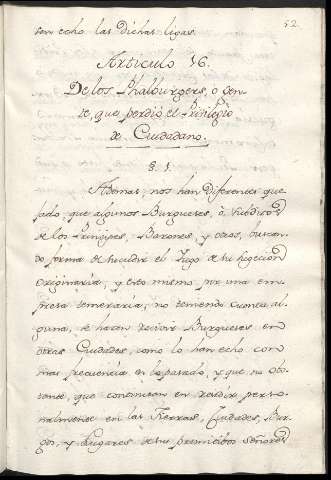 52
son echo las Dichas ligas.
Articulo 16.
De los Phalburgers, ò Gen-
te, que perdiò el Privilegio
de Ciudadano.
§. 1.
Ademas, nos han Diferentes que-
jado, que algunos Burgueses, ò Subditos
de los Principes, Barones, y otros, buscan-
do forma de sacudir el Jugo de su sugecion
originaria, y esto mismo, por una em-
presa temeraria, no temiendo cosa al-
guna, se hacen recivir Burgueses en
otras Ciudades, como lo han echo con
mas frecuencia en lo pasado, y que no obs-
tante, que continuan en residir perso-
nalmente en las Tierras, Ciudades, Bur-
gos, y Lugares de sus primeros Señores